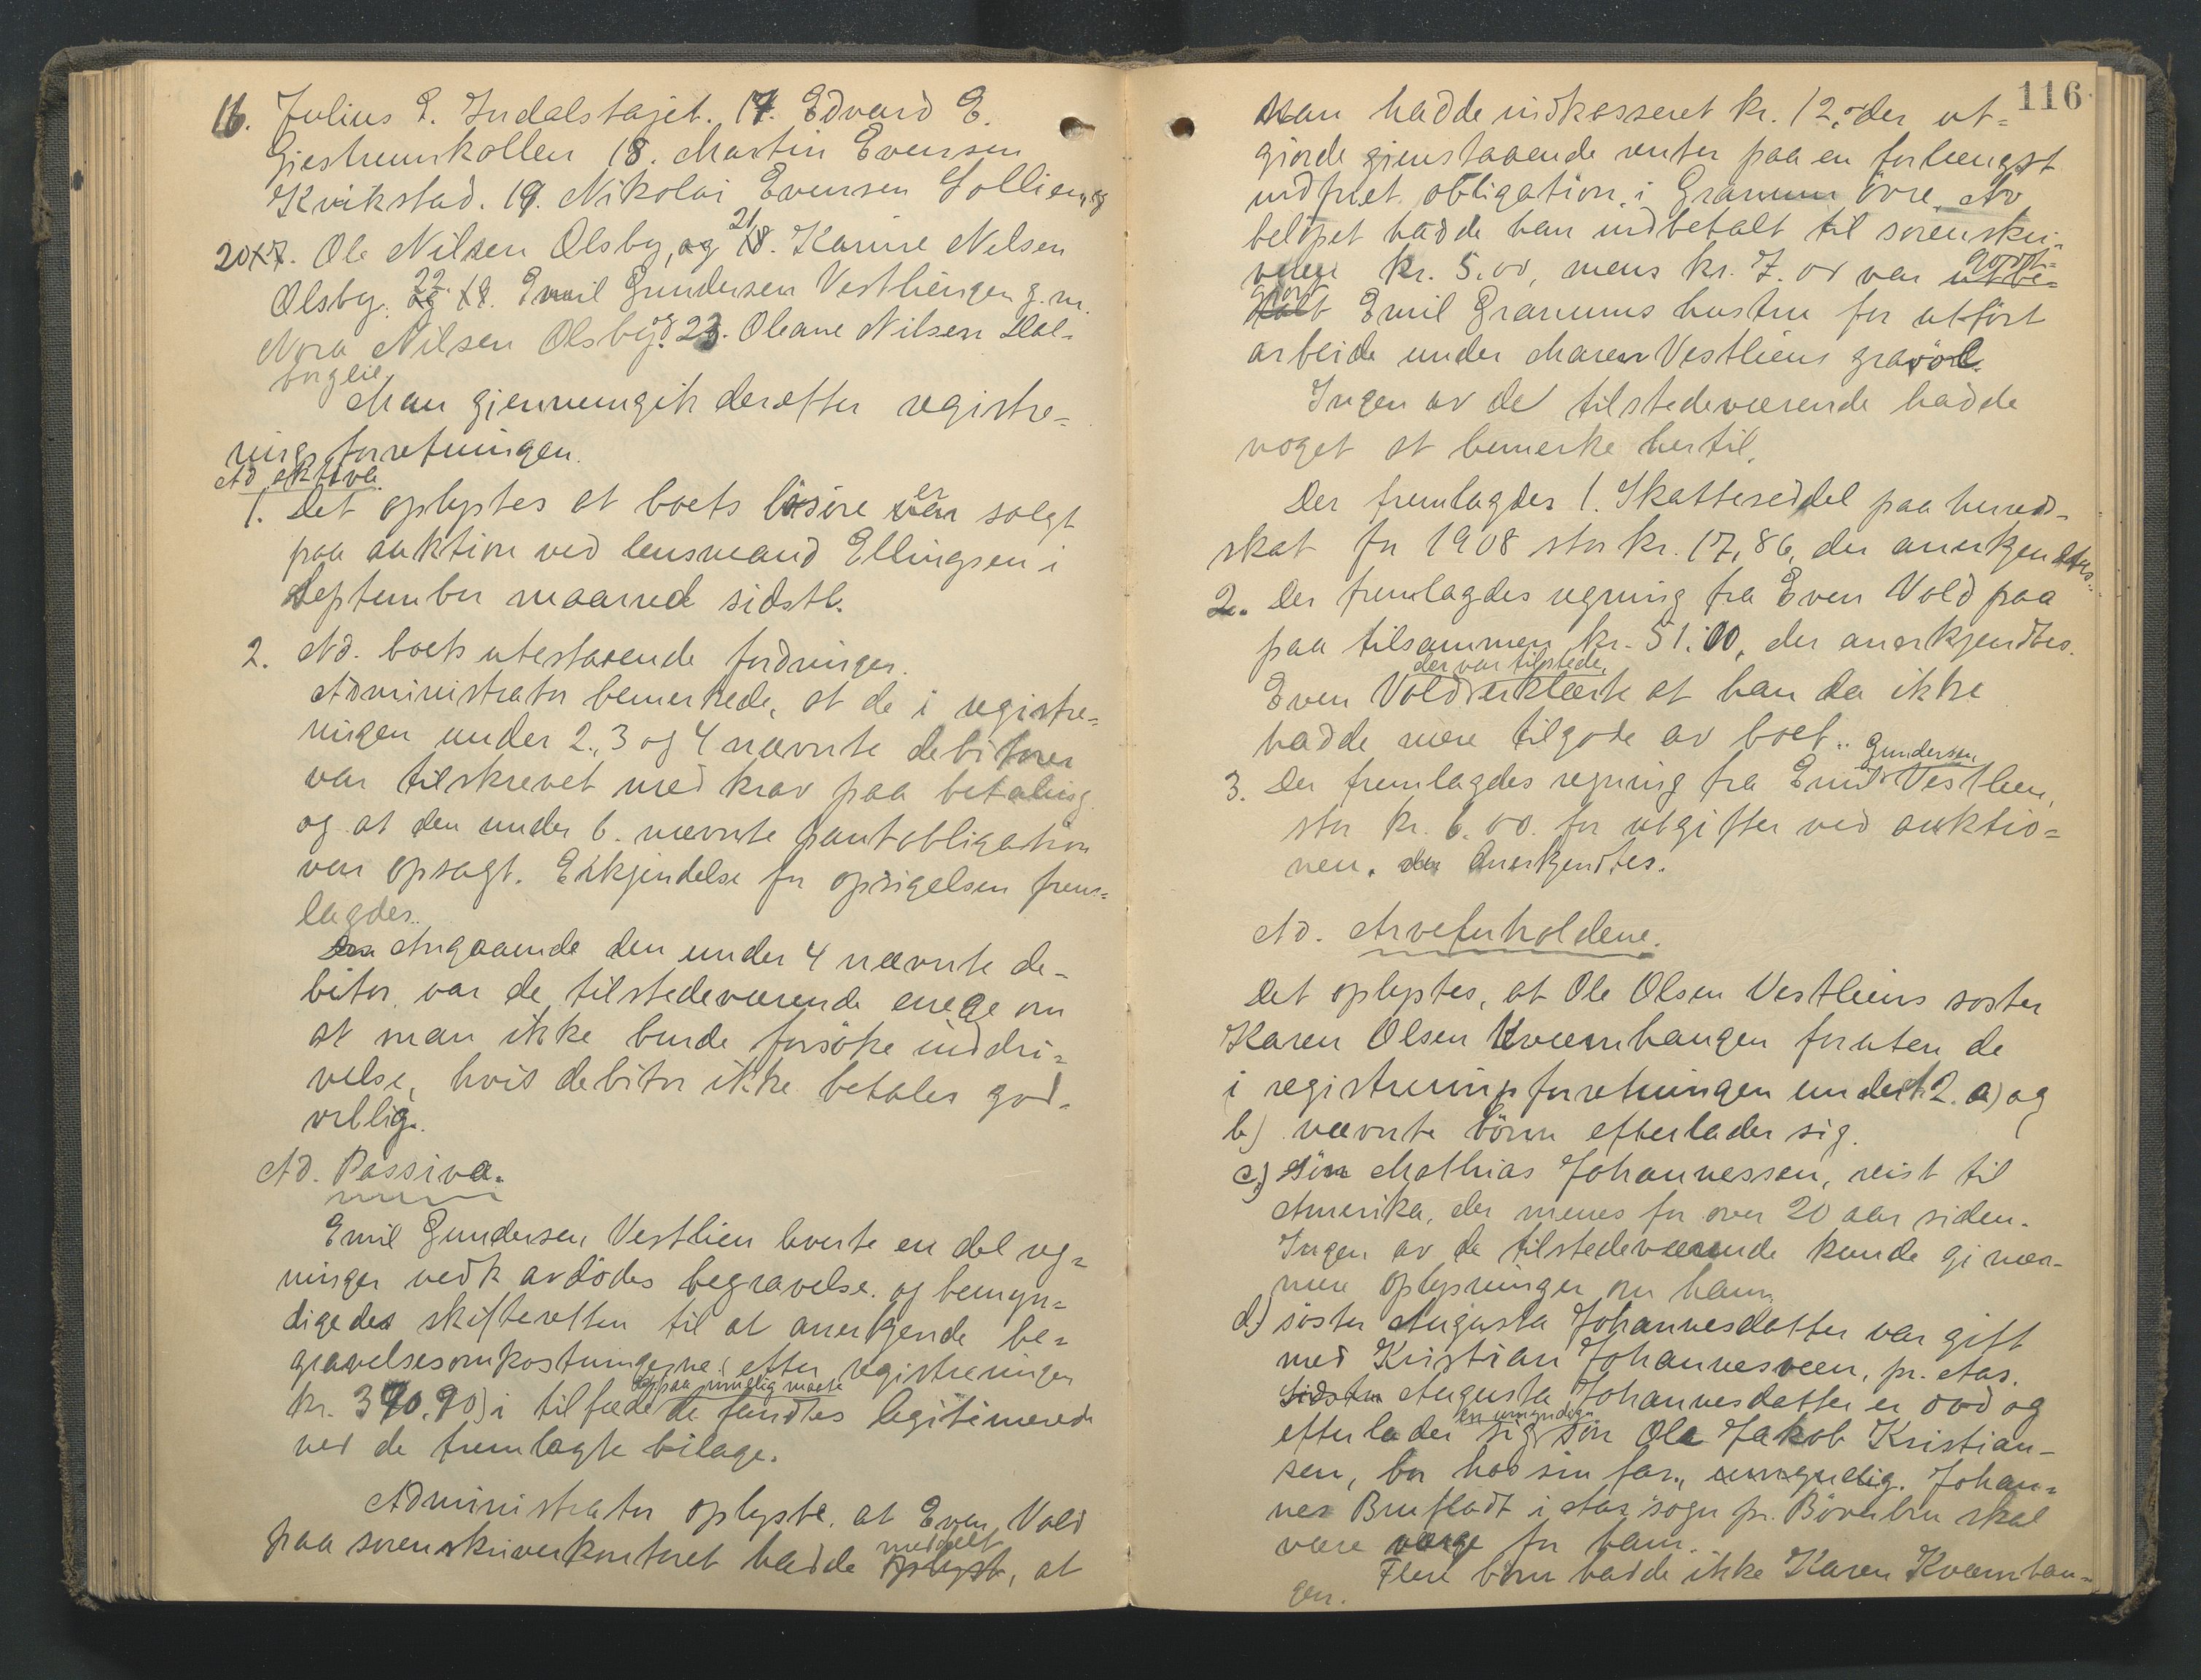 16. Julius P. Indalstajet. 17. Edvard E.
Gjestrumkollen 18. Martin Evensen
Kvikstad. 19. Nikolai Evensen Sollien, og
20 17. Ole Nilsen Olsby, og 21 18. Karine Nilsen
Olsby. og 22 19. Emil Gundersen Vestliengen g. m.
Nora Nilsen Olsby. og 23. Oleane Nilsen Dal-
borglie.
Man gjennemgik derefter registre-
ringsforretningen.
Ad aktiva.
1. Det oplystes at boets løsøre var er solgt
paa auktion ved lensmand Ellingsen i
September maaned sidstl.
2. Ad. boets utestaaende fordringer.
Administrator bemerkede, at de i registre-
ringen under 2., 3 og 4 nævnte debitorer
var tilskrevet med krav paa betaling
og at den under 6. nævnte pantobligation
var opsagt. Erkjendelse for opsigelsen frem-
lagdes.
Den Angaaende den under 4 nævnte de-
bitor var de tilstedeværende enege om
at man ikke burde forsöke inddri-
velse, hvis debitor ikke betaler god-
villig.
Ad. Passiva.
Emil Gundersen Vestlien leverte en del reg-
ninger vedk avdödes begravelse. og bemyn-
digedes skifteretten til at anerkjende be-
gravelsesomkostningerne (efter registreringen
kr. 370.90) i tilfælde de paa rimelig maate fandtes legitimerede
ved de fremlagte bilage.
Administrator oplyste, at Even Vold
paa sorenskriverkontoret hadde oplyst meddelt, at
116
han hadde indkasseret kr. 12,- der ut-
gjorde gjenstaaende renter paa en forlængst
indfriet obligation i Granum övre. Av
belöpet hadde han indbetalt til sorenskri-
veren kr. 5.00, mens kr. 7.00 var utbe-
talt godt-
gjort Emil Granums hustru for utført
arbeide under Maren Vestliens gravöl.
Ingen av de tilstedeværende hadde
noget at bemerke hertil.
Der fremlagdes 1. Skatteseddel paa herreds-
skat for 1908 stor kr. 17,86, der anerkjendtes.
2. Der fremlagdes regning fra Even Vold paa
paa tilsammen kr. 51.00, der anerkjendtes.
Even Vold der var tilstede, erklærte at han da ikke
hadde mere tilgode av boet.
3. Der fremlagdes regning fra Emil Gundersen Vestlien,
stor kr. 6.00. for utgifter ved auktio-
nen. der Anerkjendtes.
Ad. Arveforholdene.
Det oplystes, at Ole Olsen Vestliens søster
Karen Olsen Kværnhaugen foruten de
i registreringsforretningen under 2. a) og
b) nævnte börn efterlader sig.
c) Sön Mathias Johannessen, reist til
Amerika, der menes for over 20 aar siden.
Ingen av de tilstedeværende kunde gi nær-
mere oplysninger om ham.
d) søster Augusta Johannesdatter var gift
med Kristian Johannesveen, pr. Aas.
Sidstn Augusta Johannesdatter er död og
efterlader sig en umyndig sön Ole Jakob Kristian-
sen, bor hos sin far, umyndig. Johan-
nes Brufladt i Aas sogn pr. Böverbru skal
være verge for ham.
Flere börn hadde ikke Karen Kværnhau-
gen.